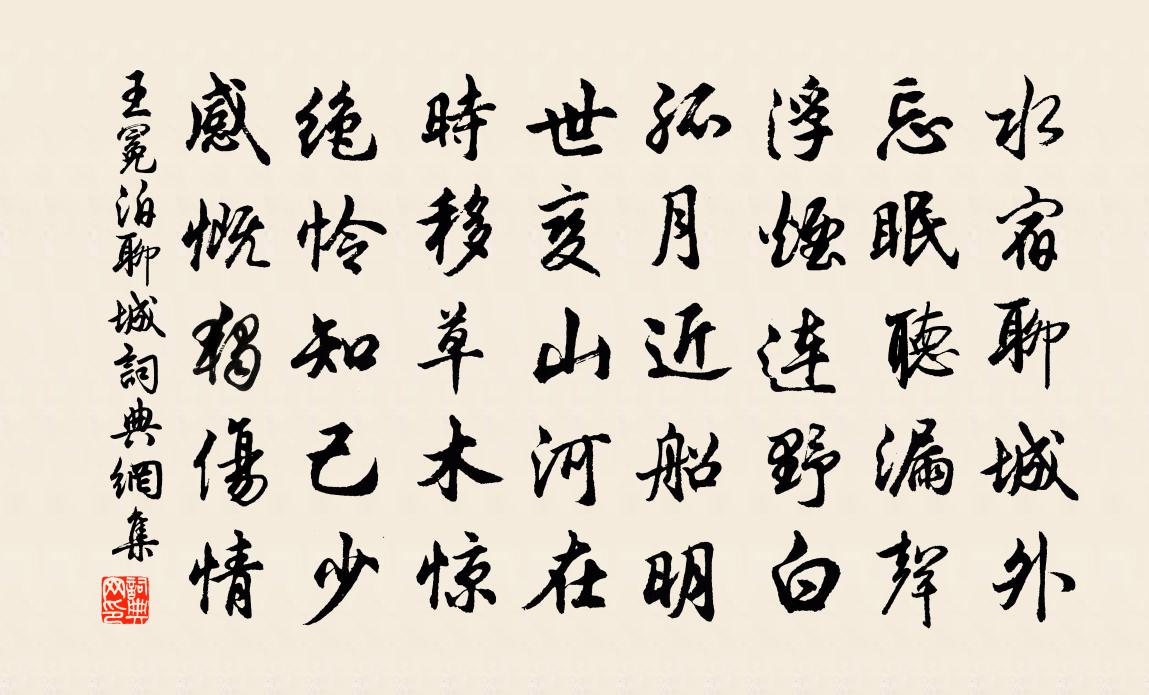 水宿聊城外
忘眠聽漏聲
浮煙連野白
孤月近船明
世变山河在
時移草木惊
绝怜知己少
感慨獨傷情
王冕泊聊城詞典網集
詞典网印